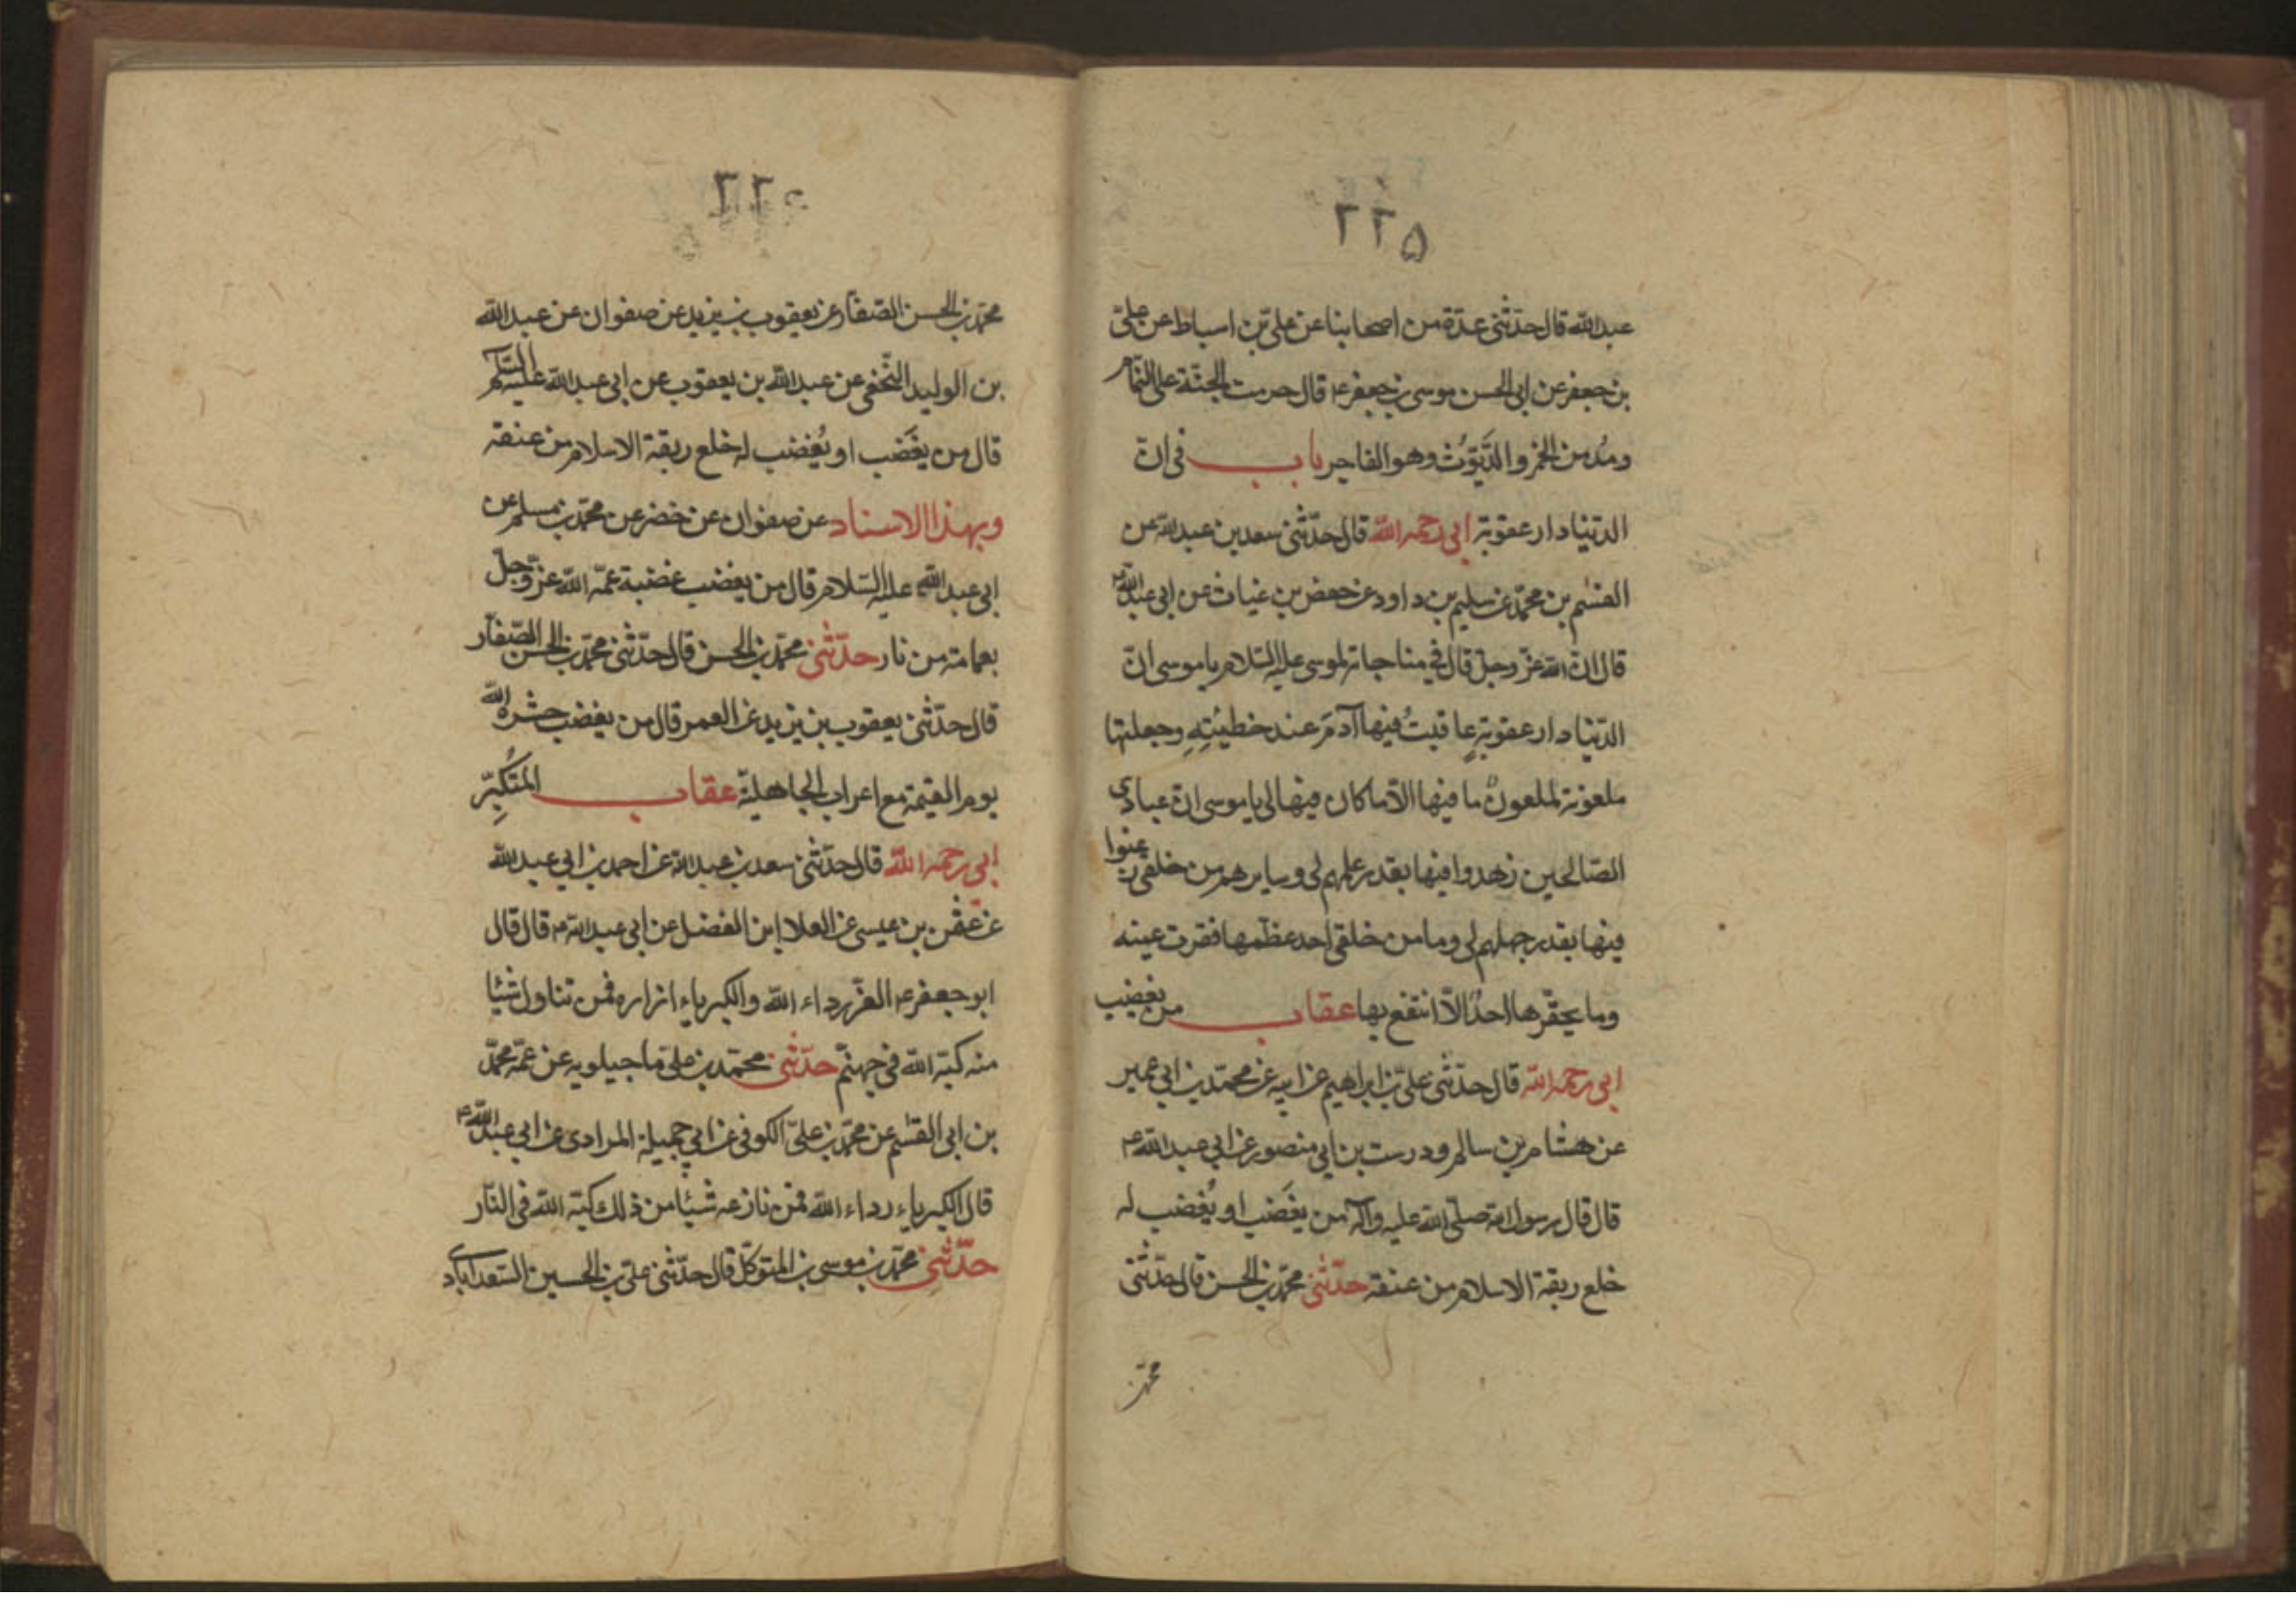 ٢٢٥
عبد الله قال حدّثنی عدّة من اصحابنا عن علیّ بن اسباط عن علیّ
بن جعفر عن ابی الحسن موسی بن جعفر ع قال حرمت الجنّة علی النمّام
ومُدمن الخمر والدَّیّوُث وهو الفاجر باب فی انّ
الدّنیا دار عقوبة ابی رحمه الله قال حدّثنی سعد بن عبد الله عن
القسٰم بن محمّد عن سلیم بن داود عن حفص بن غیاث عن ابی عبد الله ع
قال انّ الله عزّ وجلّ قال فی مناجاته لموسی علیه السّلام یا موسی انّ
الدّنیا دار عقوبةٍ عاقبتُ فیها آدمَ عند خطیئتِهِ وجعلتها
ملعونة لملعونٌ ما فیها الاّ ما کان فیها لی یا موسی انّ عبادی
الصّالحین زهدوا فیها بقدر علمهم لی وسایرهم من خلقی رغبوا
فیها بقدر جهلهم لی وما من خلقی احد عظّمها فقرت عینه
وما یحقّرها احدٌ الاّ انتفع بها عقاب من یغضب
ابی رحمه الله قال حدّثنی علیّ بن ابراهیم عن ابیه عن محمّد بن ابی عمیر
عن هشام بن سالم ودرست بن ابی منصور عن ابی عبد الله ع
قال قال رسول الله صلّی الله علیه وآله من یغضَب او یُغضب له
خلع ربقة الاسلام من عنقه حدّثنی محمّد بن الحسن قال حدّثنی
محمّد بن
محمّد بن الحسن الصّفّار عن یعقوب بن یزید عن صفوان عن عبد الله
بن الولید النّخعی عن عبد الله بن یعقوب عن ابی عبد الله علیه السّلام
قال من یغَضب او یُغضب له خلع ربقة الاسلام من عنقه
وبهذا الاسناد عن صفوان عن خضر عن محمّد بن مسلم عن
ابی عبد الله علیه السّلام قال من یغضب غضبة عمّه الله عزّ وجلّ
بعمامة من نار حدّثنی محمّد بن الحسن قال حدّثنی محمّد بن الحسن الصّفّار
قال حدّثنی یعقوب بن یزید عن العمر قال من یغضب حشره الله
یوم القیٰمة مع اعراب الجاهلیّة عقاب المتُکبِّر
ابی رحمه الله قال حدّثنی سعد بن عبد الله عن احمد بن ابی عبد الله
عن عثمٰن بن عیسی عن العلا ابن الفضل عن ابی عبد الله ع قال قال
ابو جعفر ع العزّ رداء الله والکبریاء ازاره فمن تناول شیئا
منه کبّه الله فی جهنّم حدّثنی محمّد بن علیّ ماجیلویه عن عمّه محمّد
بن ابی القسٰم عن محمّد بن علیّ الکوفی عن ابی جمیلة المرادی عن ابی عبد الله ع
قال الکبریاء رداء الله فمن نازعه شیئا من ذلك کبّه الله فی النّار
حدّثنی محمّد بن موسی بن المتوکّل قال حدّثنی علیّ بن الحسین السّعدآبادی